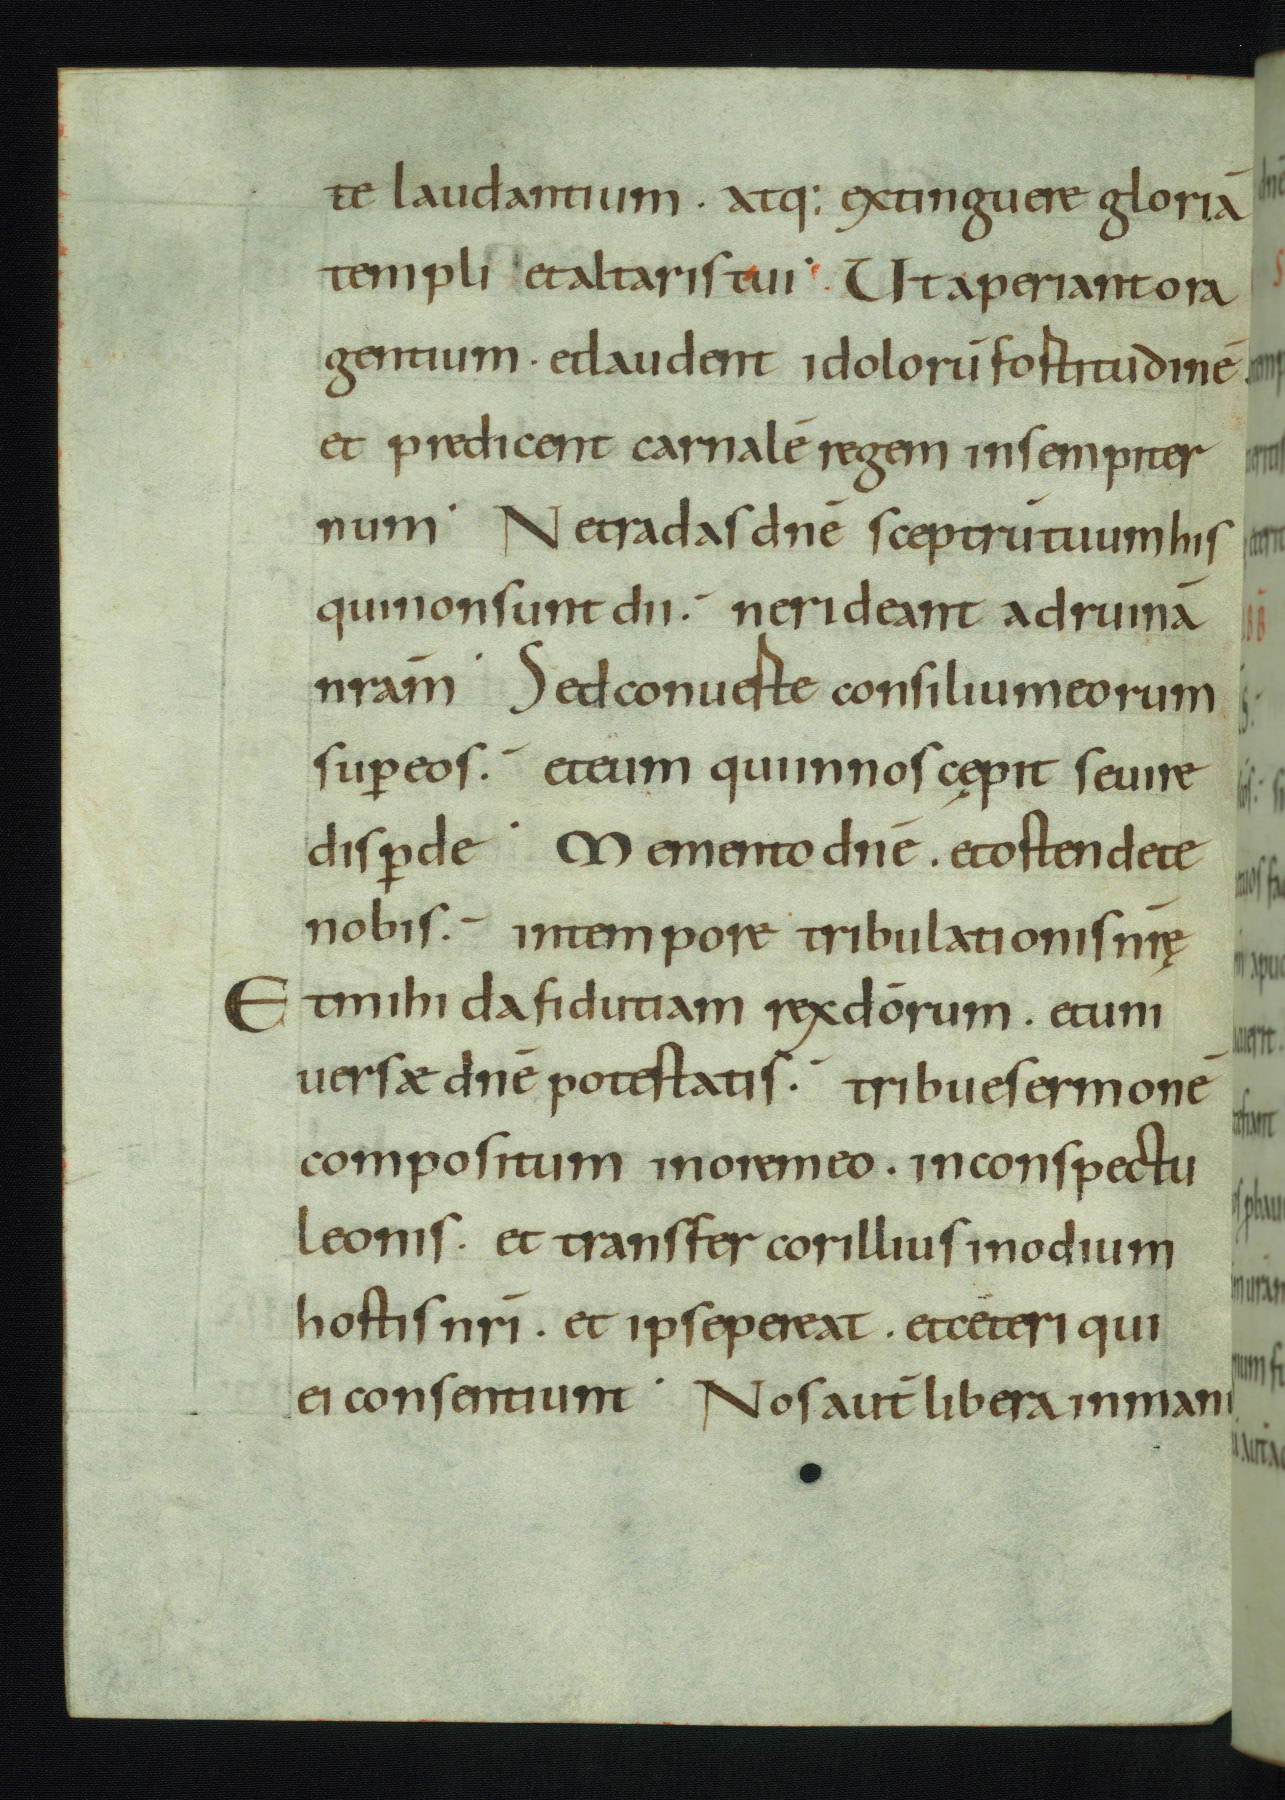 te laudantium . atq: extinguere gloriā
templi et altaris tui . Ut aperiant ora
gentium . et laudent idolorū fortitudinē
et predicent carnalē regem in sempiter
num . Ne tradas dnē sceptrū tuum his
qui non sunt dii . ne rideant ad ruinā
nrām . Sed conuerte consilium eorum
sup eos . et eum qui in nos cępit seuire
dispde . Memento dnē . et ostende te
nobis . in tempore tribulationis nrę
Et mihi da fidutiam rex dōrum . et uni
uersæ dnē potestatis . tribue sermonē
compositum in ore meo . in conspectu
leonis . et transfer cor illius in odium
hostis nrī . et ipse pereat . et ceteri qui
ei consentiunt . Nos aut̄ libera in manu